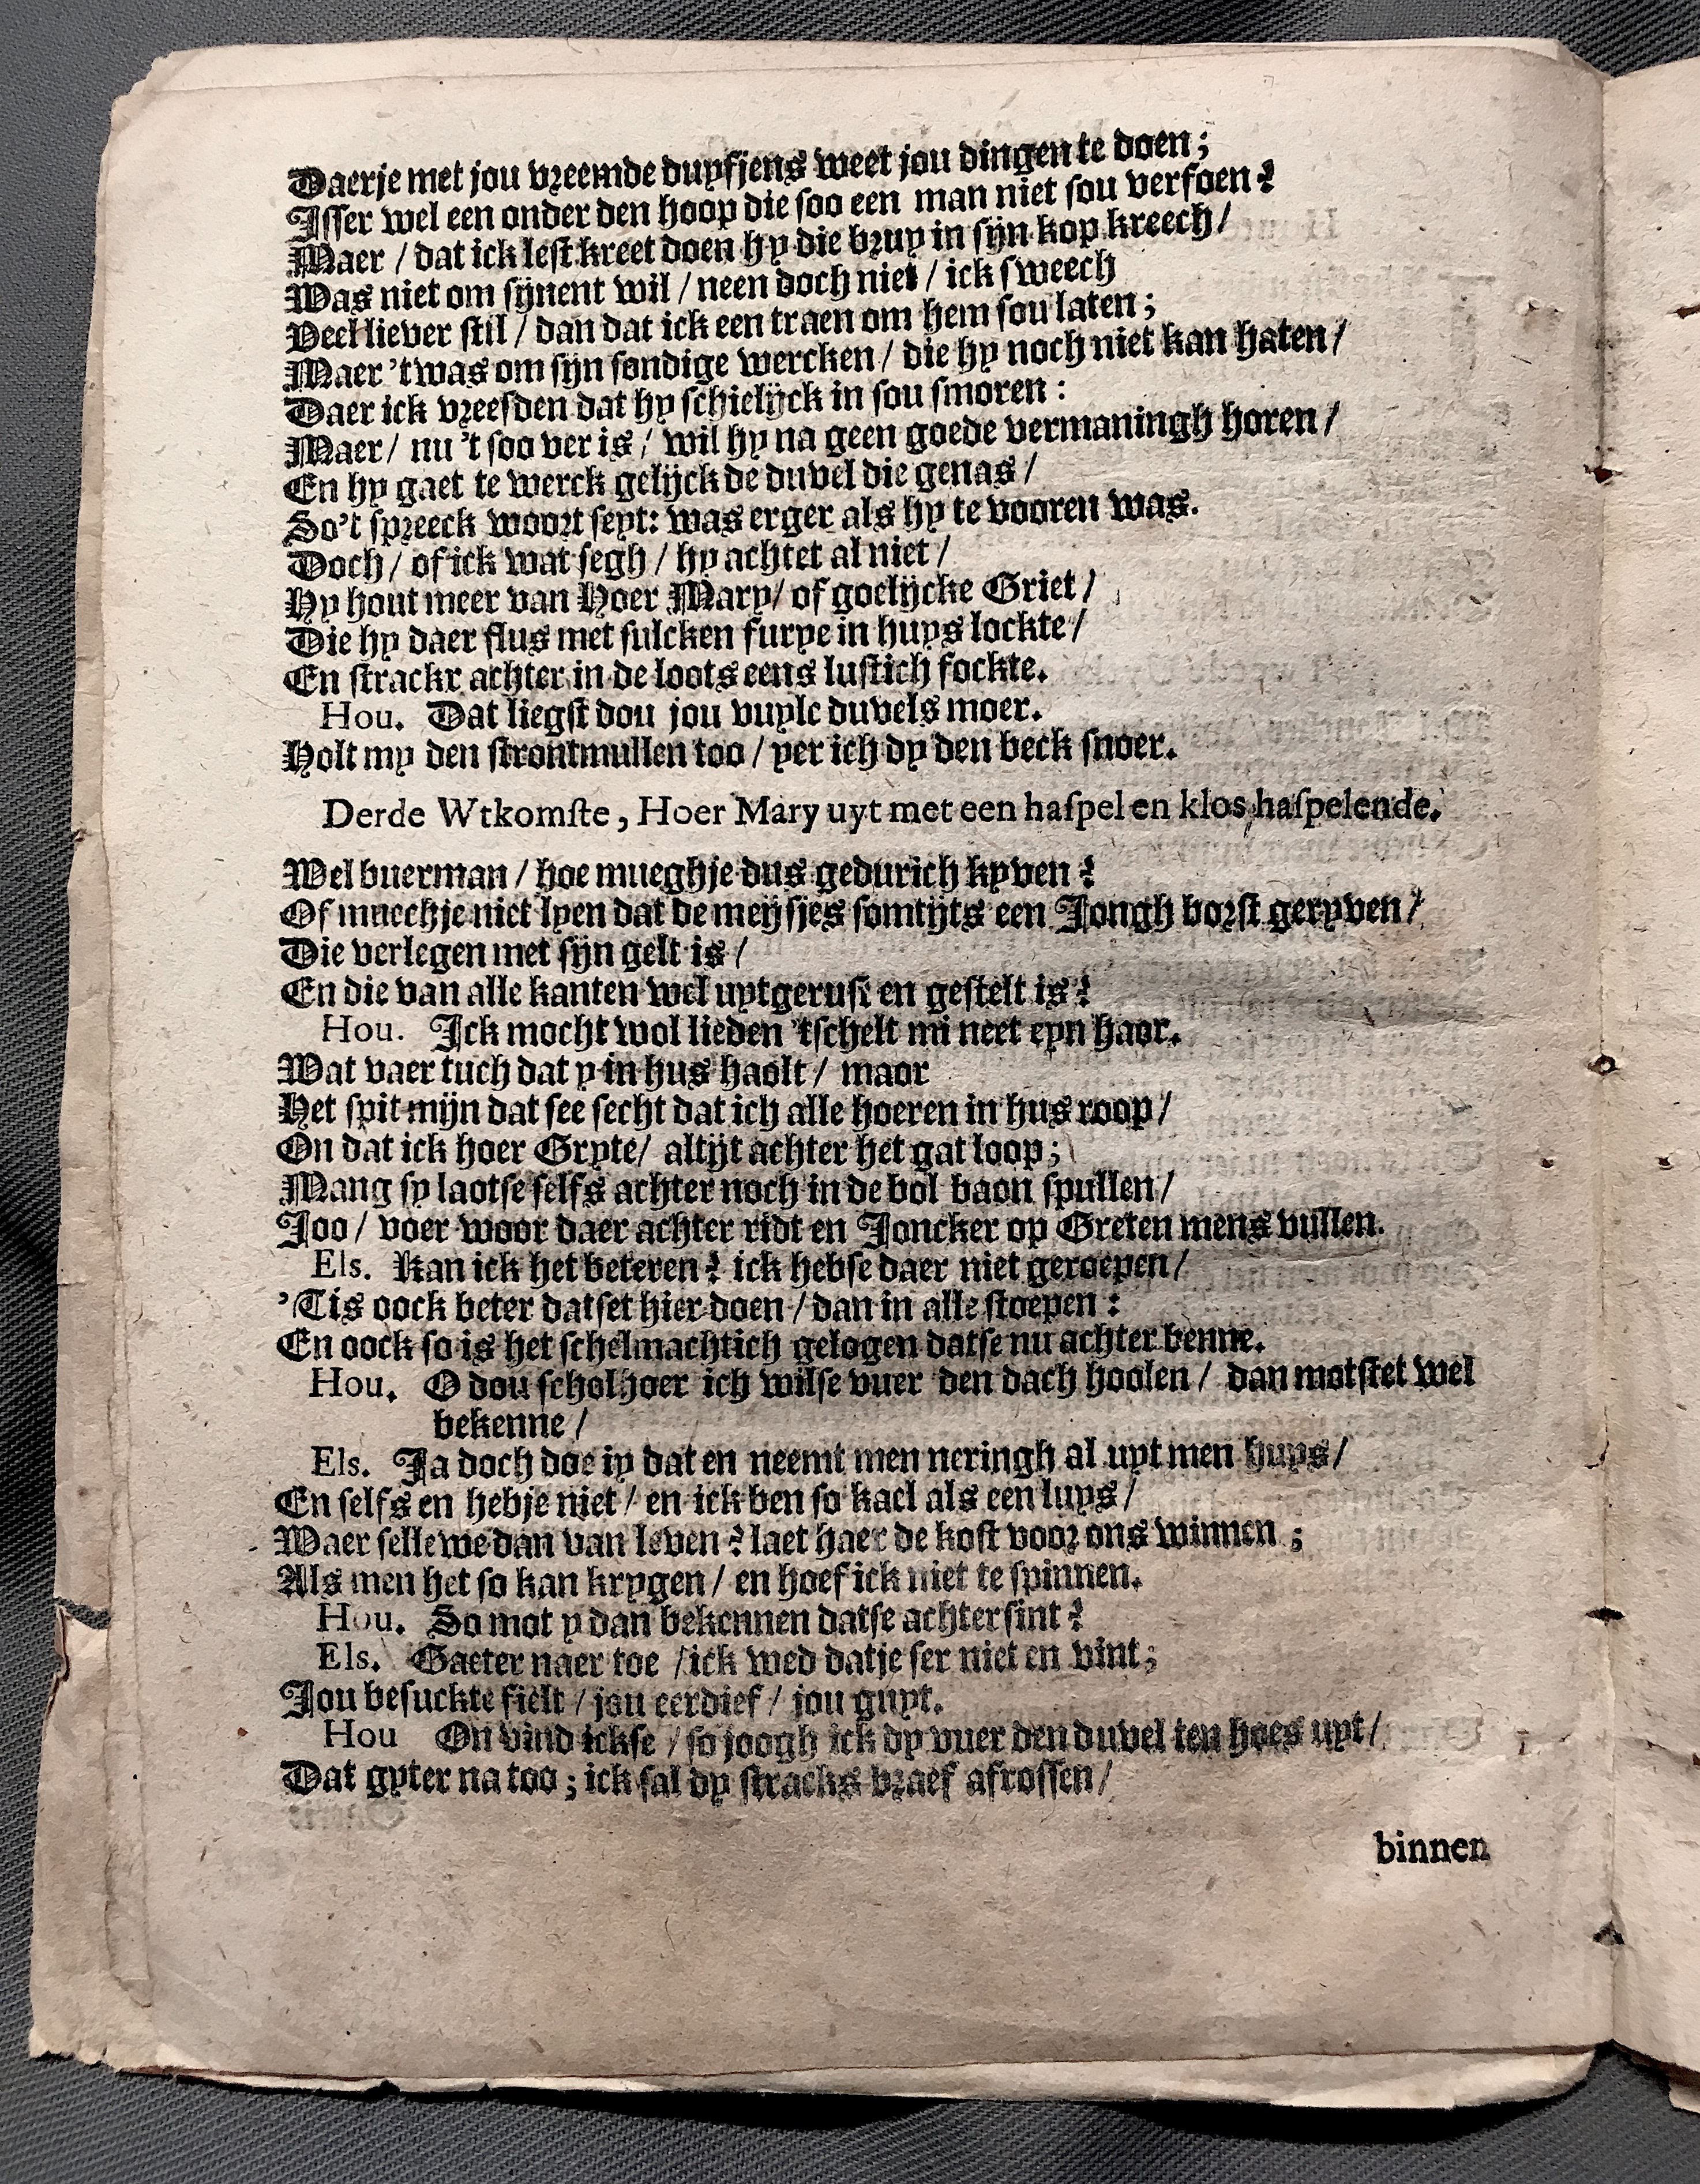 Daerje met jou vreemde duyfjens weet jou dingen te doen;
Isser wel een onder den hoop die soo een man niet sou versoen?
Maer / dat ick lest kreet doen hy die bruy in sijn kop kreech /
Was niet om sijnent wil / neen doch niet / ick sweech
Veel liever stil / dan dat ick een traen om hem sou laten;
Maer 't was om sijn sondige wercken / die hy noch niet kan haten /
Daer ick vreesden dat hy schielijck in sou smoren:
Maer / nu 't soo ver is / wil hy na geen goede vermaningh horen /
En hy gaet te werck gelijck de duvel die genas /
So't spreeck woort seyt: was erger als hy te vooren was.
Doch / of ick wat segh / hy achtet al niet /
Hy hout meer van Hoer Mary / of goelijcke Griet /
Die hy daer flus met sulcken furye in huys lockte /
En strackx achter in de loots eens lustich fockte.
Hou. Dat liegst dou jou vuyle duvels moer.
Holt my den strontmullen too / yer ich dy den beck snoer.
Derde Wtkomste, Hoer Mary uyt met een haspel en klos haspelende.
Wel buerman / hoe mueghje dus gedurich kyven?
Of muechje niet lyen dat de meysjes somtijts een Jongh borst geryven /
Die verlegen met sijn gelt is /
En die van alle kanten wel uytgerust en gestelt is?
Hou. Ick mocht wol lieden 'tschelt mi neet eyn haor.
Wat vaer tuch dat y in hus haolt / maor
Het spit mijn dat see secht dat ich alle hoeren in hus roop /
On dat ick hoer Gryte / altijt achter het gat loop;
Mang sy laotse selfs achter noch in de bol baon spullen /
Joo / voer woor daer achter ridt en Joncker op Greten mens vullen.
Els. Kan ick het beteren? ick hebse daer niet geroepen /
'Tis oock beter datset hier doen / dan in alle stoepen:
En oock so is het schelmachtich gelogen datse nu achter benne.
Hou. O dou scholhoer ich wilse vuer den dach hoolen / dan motstet wel
bekenne /
Els. Ja doch doe iy dat en neemt men neringh al uyt men huys /
En selfs en hebje niet / en ick ben so kael als een luys /
Waer selle we dan van leven? laet haer de kost voor ons winnen;
Als men het so kan krygen / en hoef ick niet te spinnen.
Hou. So mot y dan bekennen datse achter sint?
Els. Gaeter naer toe / ick wed datje ser niet en vint;
Jou besuckte fielt / jou eerdief / jou guyt.
Hou On vind ickse / so joogh ick dy vuer den duvel ten hoes uyt /
Dat gyter na too; ick sal dy stracks braef afrossen /
binnen